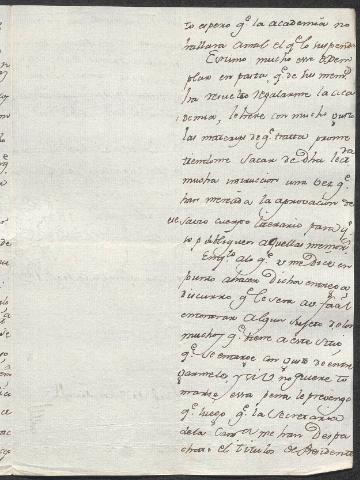 to espero qᵉ la academia no
hallara a mal el qᵉ lo suspenda
Estimo mucho ese Exem
plar en pasta qᵉ de sus memˢ
ha resuelto regalarme la Aca
demia, le leere con mucho gusto
las materias de qᵉ trata prome
tiendome sacar de dha lectᵃ
mucha instruccion una vez qᵉ
han merecido la aprovacion de
ese savio cuerpo literario para qᵉ
se publiquen aquellas memorˢ
Enqᵗᵒ alo qᵉ v me dice en
punto ahacer dicha entrega
discurro qᵉ le sera a v facil
encontrar algun sujeto de los
muchos qᵉ biene a este sitio
qᵉ se encargue con gusto de entre
garmelo, y si v no quiere to
marse esta pena le prevengo
qᵉ luego qᵉ la Secretaria
dela Camᵃ me han despa
chado el titulo de Presidente